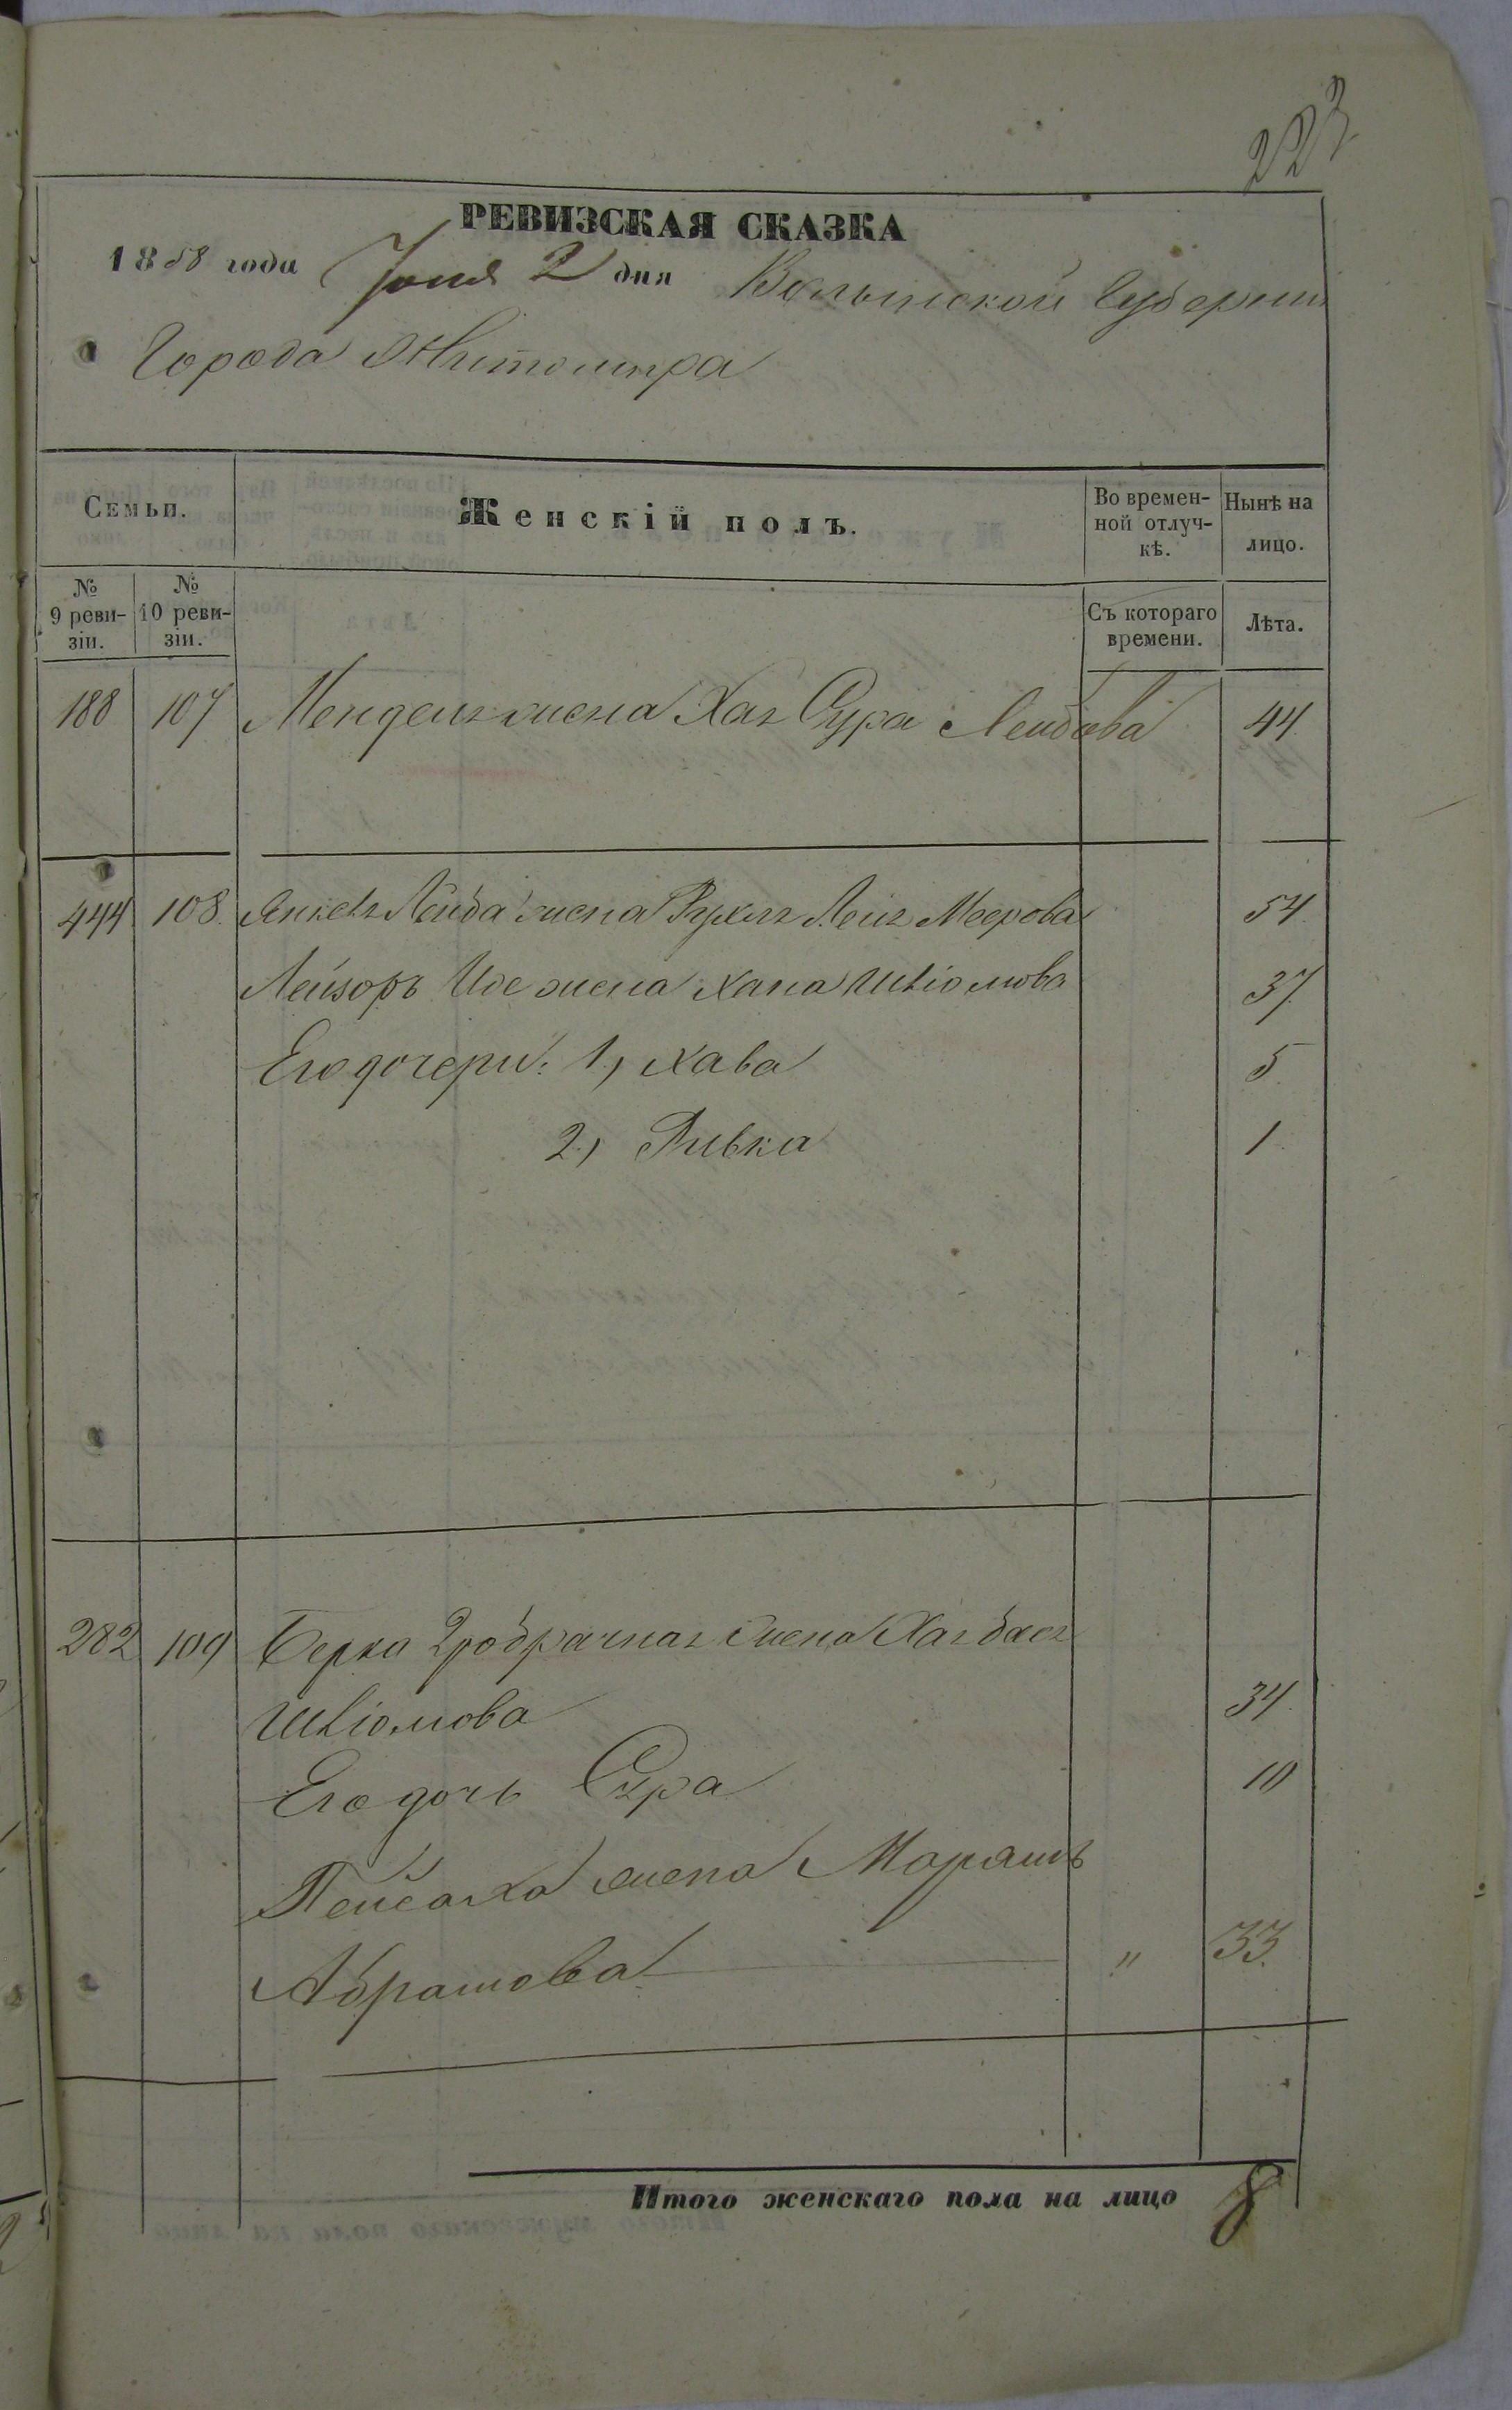 223
РЕВИЗСКАЯ СКАЗКА
1858 года Іюня 2 дня Волынской Губерніи
Города Житомира
Семьи. Женскій полъ. Во времен-ной отлуч-кѣ. Нынѣ на лицо.
№ 9 реви-зіи. № 10 реви-зіи. Съ котораго времени. Лѣта.
188 107 Менделя жена Хая Сура Лейбова 44
444 108. Янкеля Лейба жена Рухля Лея Меерова 54
Лейзоръ Иось жена Хана Шліомова 37
Его дочери: 1, Хава 5
2, Ривка 1
282 109 Берка 2гобрачная жена Хая бася
Шліомова 34
Его дочь Сура 10
Пейсаха жена Маріямъ
Абрамова " 33.
Итого женскаго пола на лицо 8